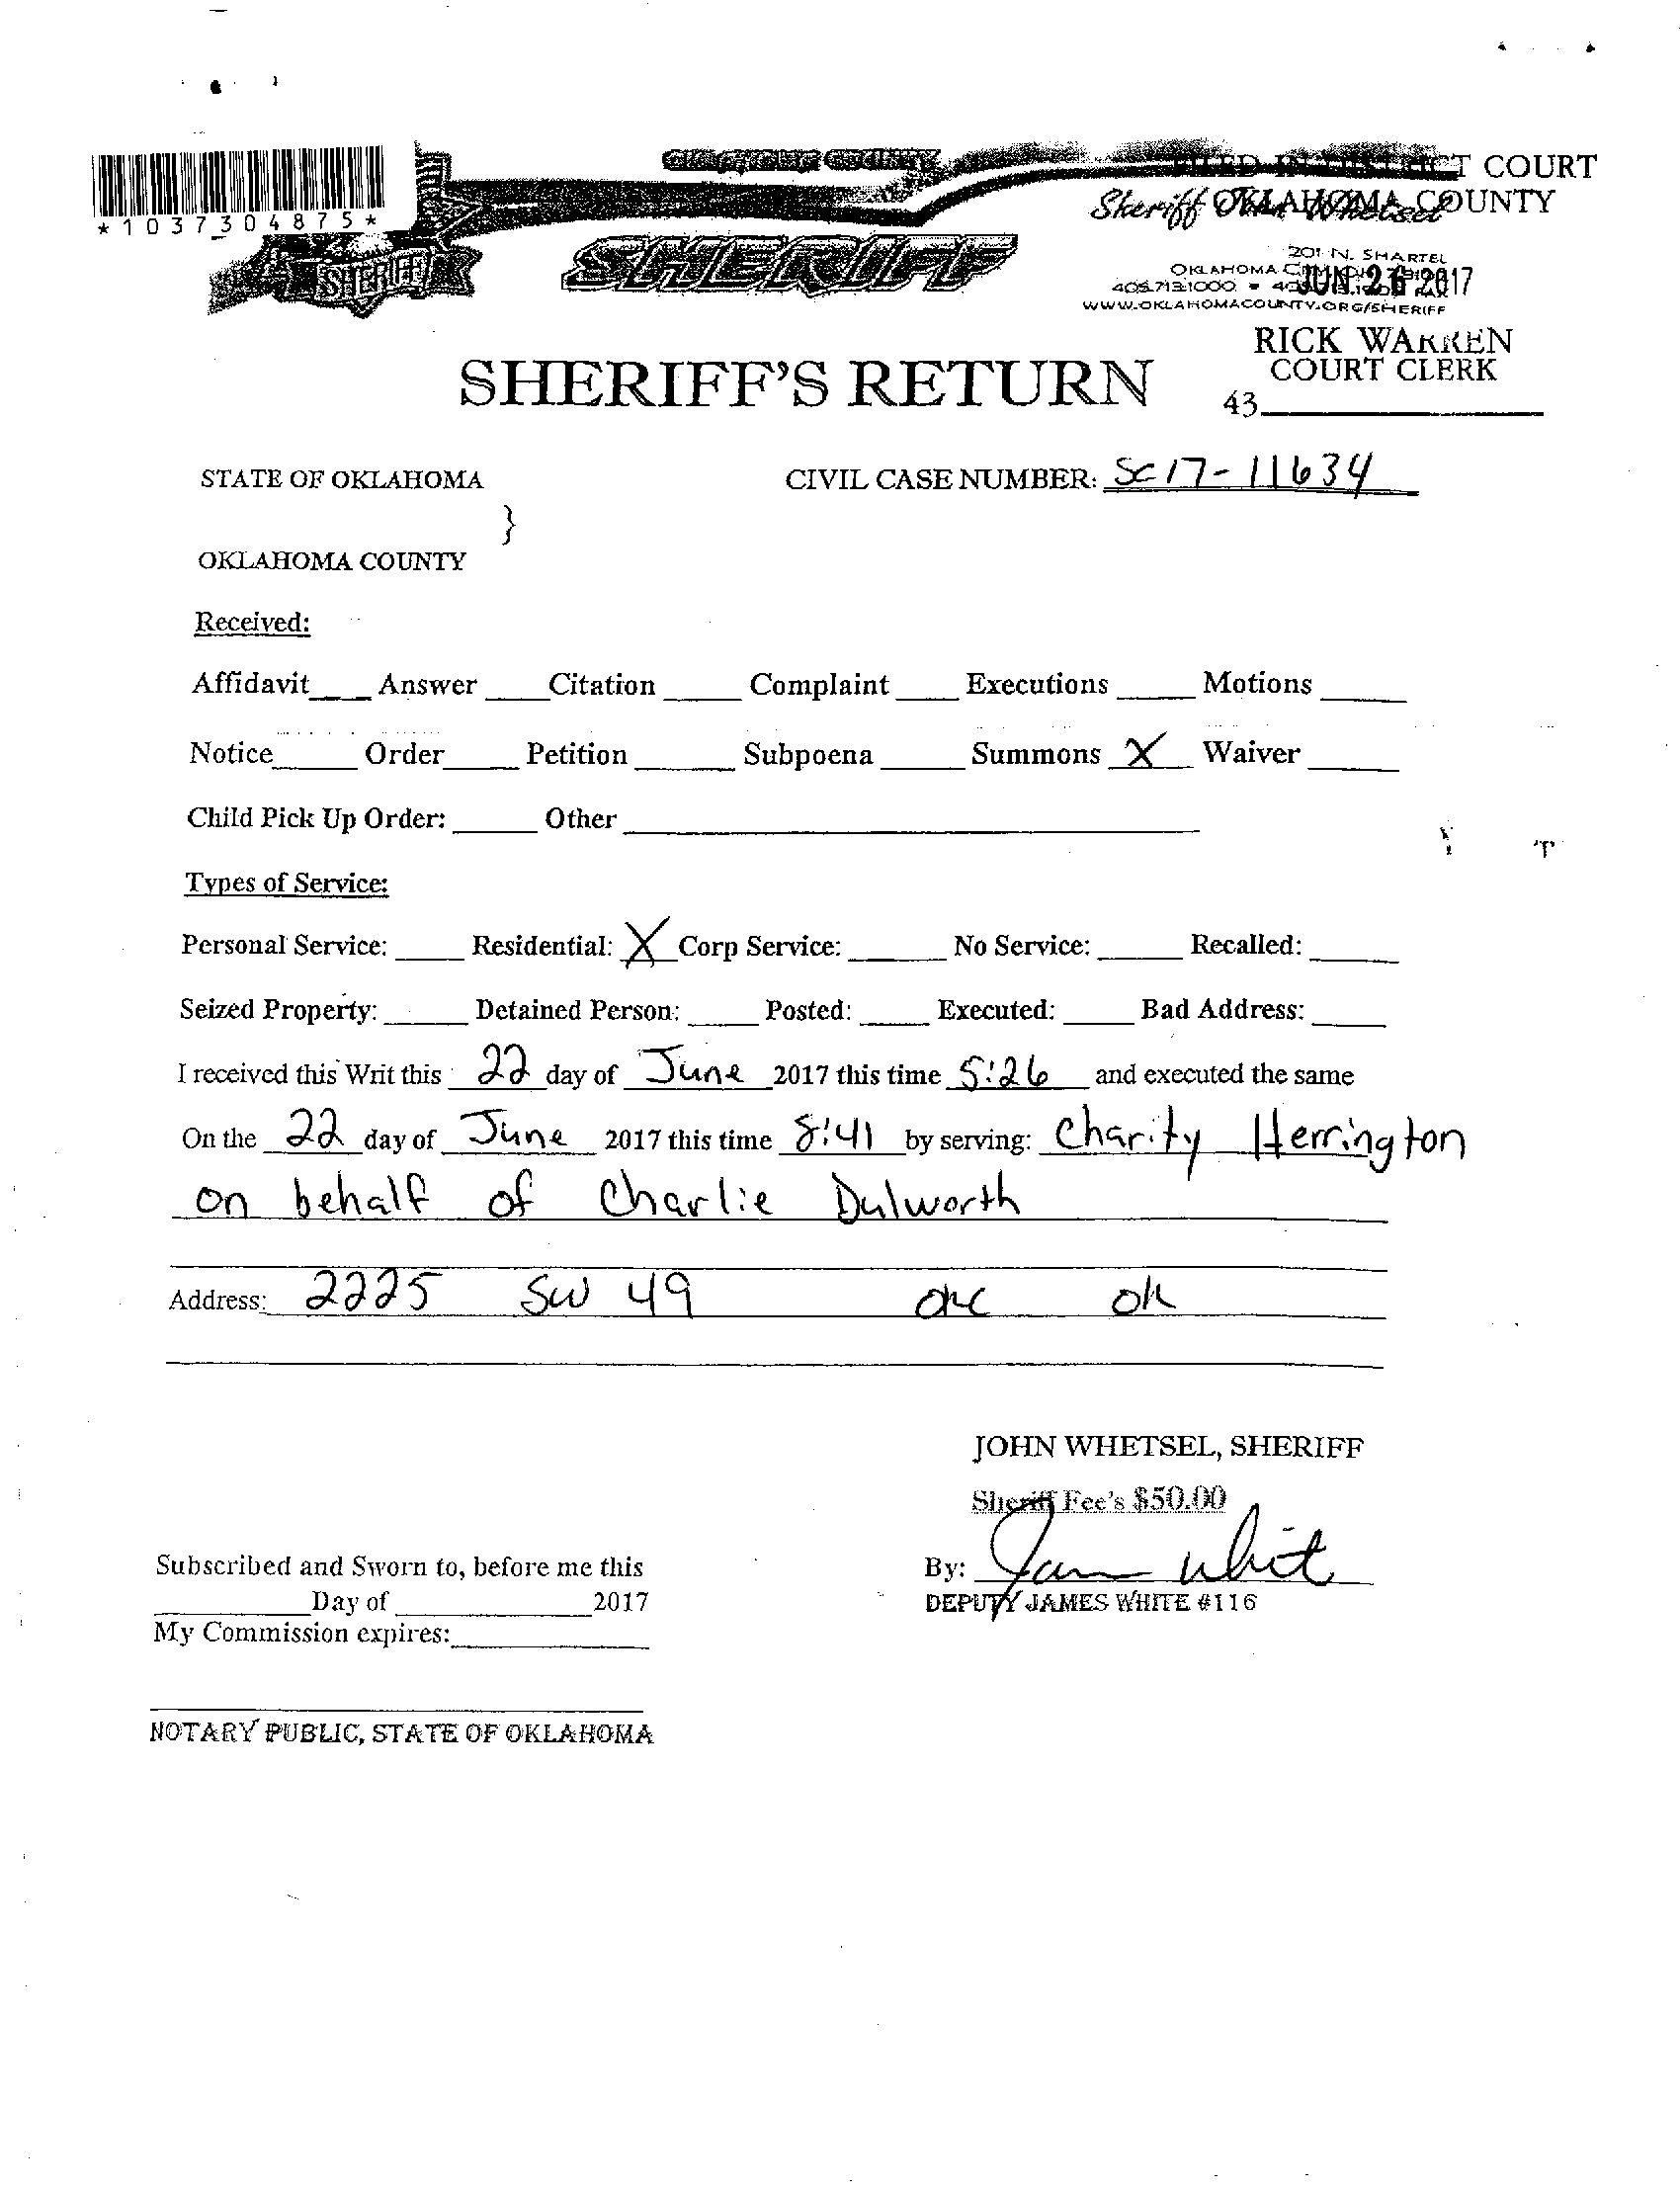 *1037304875*
OKLAHOMA COUNTY
FILED IN DISTRICT COURT
Sheriff John Whetsel
OKLAHOMA COUNTY
SHERIFF
SHERIFF
201 N. SHARTEL
OKLAHOMA
JUN 26 2017
405.713.1000
WWW.OKLAHOMACOUNTY.ORG/SHERIFF
RICK WARREN
COURT CLERK
SHERIFF'S RETURN
43
STATE OF OKLAHOMA CIVIL CASE NUMBER: SC17-11634
}
OKLAHOMA COUNTY
Received:
Affidavit Answer Citation Complaint Executions Motions
Notice Order Petition Subpoena Summons X Waiver
Child Pick Up Order: Other
Types of Service:
Personal Service: Residential: X Corp Service: No Service: Recalled:
Seized Property: Detained Person: Posted: Executed: Bad Address:
I received this Writ this 22 day of June 2017 this time 5:26 and executed the same
On the 22 day of June 2017 this time 8:41 by serving: Charity Herrington
on behalf of Charlie Dulworth
Address: 2225 SW 49 OKC OK
JOHN WHETSEL, SHERIFF
Sheriff Fee's $50.00
Subscribed and Sworn to, before me this By: James White
Day of 2017 DEPUTY JAMES WHITE #116
My Commission expires:
NOTARY PUBLIC, STATE OF OKLAHOMA